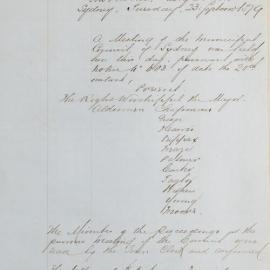 Sydney, Tuesday, 23. September 1879
A Meeting of the Municipal
Council of Sydney was held
on this day, pursuant with
notice No 603 of date the 20th
instant,
Present
The Right Worshipful the Mayor
Aldermen Chapman
Green
Kearns
Kippax
Meares
Palmer
Carter
Taylor
Hughes
Young
Moore.
The Minutes of the Proceedings of the
previous meeting of the Council were
read by the Town Clerk and confirmed